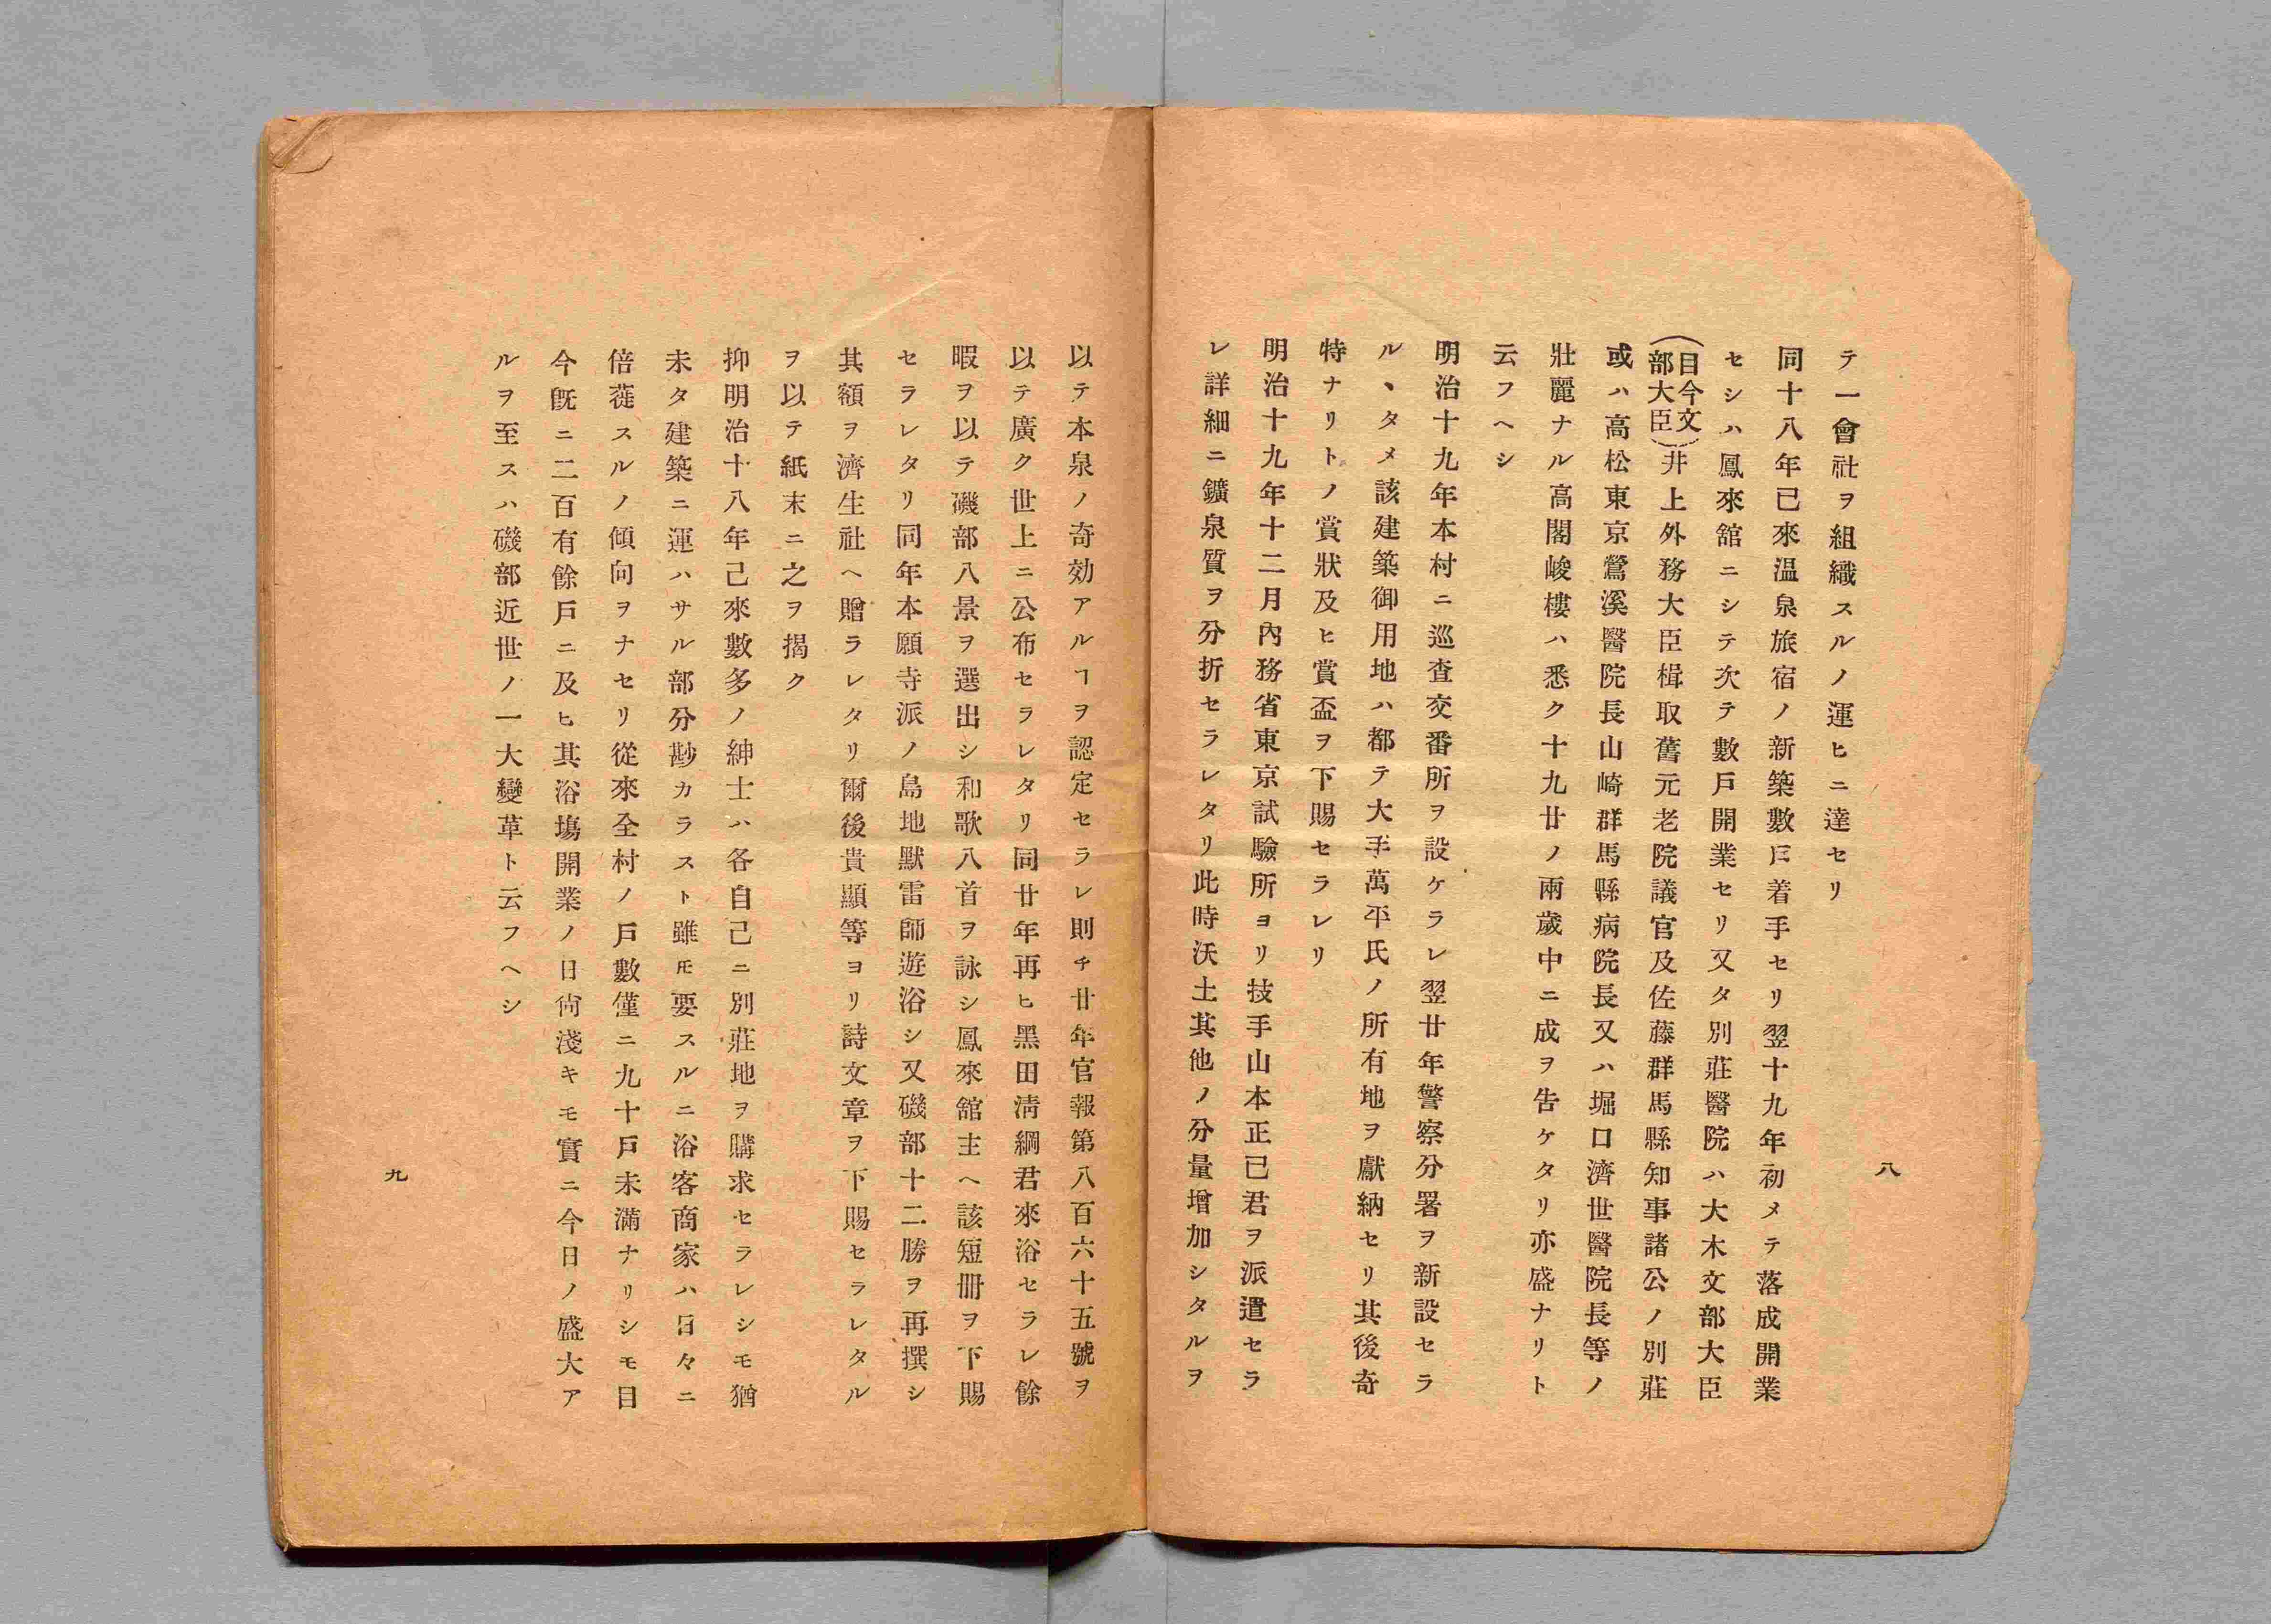 八
テ一會社ヲ組織スルノ運ヒニ達セリ
同十八年已來温泉旅宿ノ新築數戸着手セリ翌十九年初メテ落成開業
セシハ鳳來舘ニシテ次テ數戸開業セリ又タ別莊醫院ハ大木文部大臣
(目今文部大臣)井上外務大臣楫取舊元老院議官及佐藤群馬縣知事諸公ノ別莊
或ハ高松東京鶯溪醫院長山崎群馬縣病院長又ハ堀口濟世醫院長等ノ
壯麗ナル高閣峻樓ハ悉ク十九廿ノ兩歲中ニ成ヲ告ケタリ亦盛ナリト
云フヘシ
明治十九年本村ニ巡査交番所ヲ設ケラレ翌廿年警察分署ヲ新設セラ
ルヽタメ該建築御用地ハ都テ大手萬平氏ノ所有地ヲ獻納セリ其後奇
特ナリトノ賞狀及ヒ賞盃ヲ下賜セラレリ
明治十九年十二月內務省東京試驗所ヨリ技手山本正已君ヲ派遣セラ
レ詳細ニ鑛泉質ヲ分折セラレタリ此時沃土其他ノ分量增加シタルヲ
以テ本泉ノ奇効アルヿヲ認定セラレ則チ廿年官報第八百六十五號ヲ
以テ廣ク世上ニ公布セラレタリ同廿年再ヒ黑田淸綱君來浴セラレ餘
暇ヲ以テ磯部八景ヲ選出シ和歌八首ヲ詠シ鳳來舘主ヘ該短冊ヲ下賜
セラレタリ同年本願寺派ノ島地默雷師遊浴シ又磯部十二勝ヲ再撰シ
其額ヲ濟生社ヘ贈ラレタリ爾後貴顯等ヨリ詩文章ヲ下賜セラレタル
ヲ以テ紙末ニ之ヲ揭ク
抑明治十八年己來數多ノ紳士ハ各自己ニ別莊地ヲ購求セラレシモ猶
未タ建築ニ運ハサル部分尠カラスト雖𪜈要スルニ浴客商家ハ日々ニ
倍蓰スルノ傾向ヲナセリ從來全村ノ戸數僅ニ九十戸未滿ナリシモ目
今旣ニ二百有餘戸ニ及ヒ其浴塲開業ノ日尙淺キモ實ニ今日ノ盛大ア
ルヲ至スハ磯部近世ノ一大變革ト云フヘシ
九